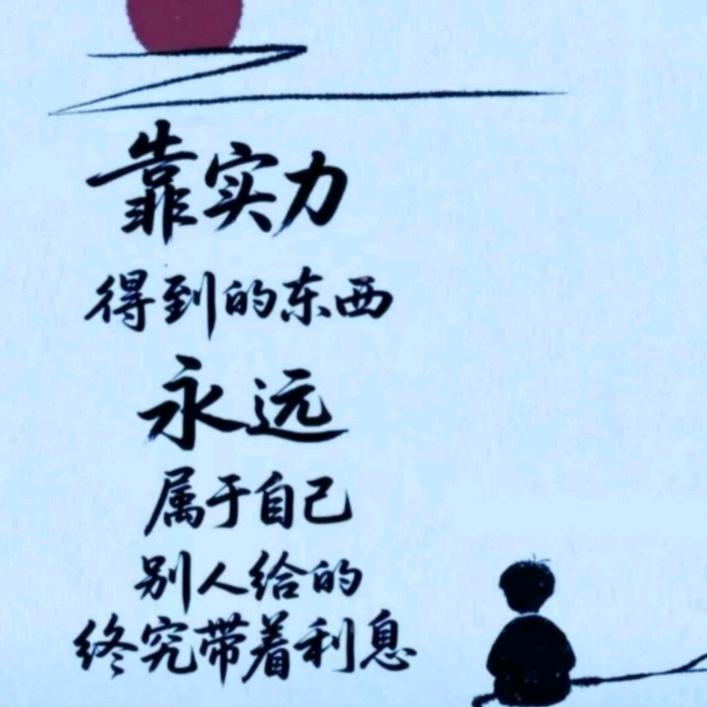 靠实力
得到的东西
永远
属于自己
别人给的
终究带着利息